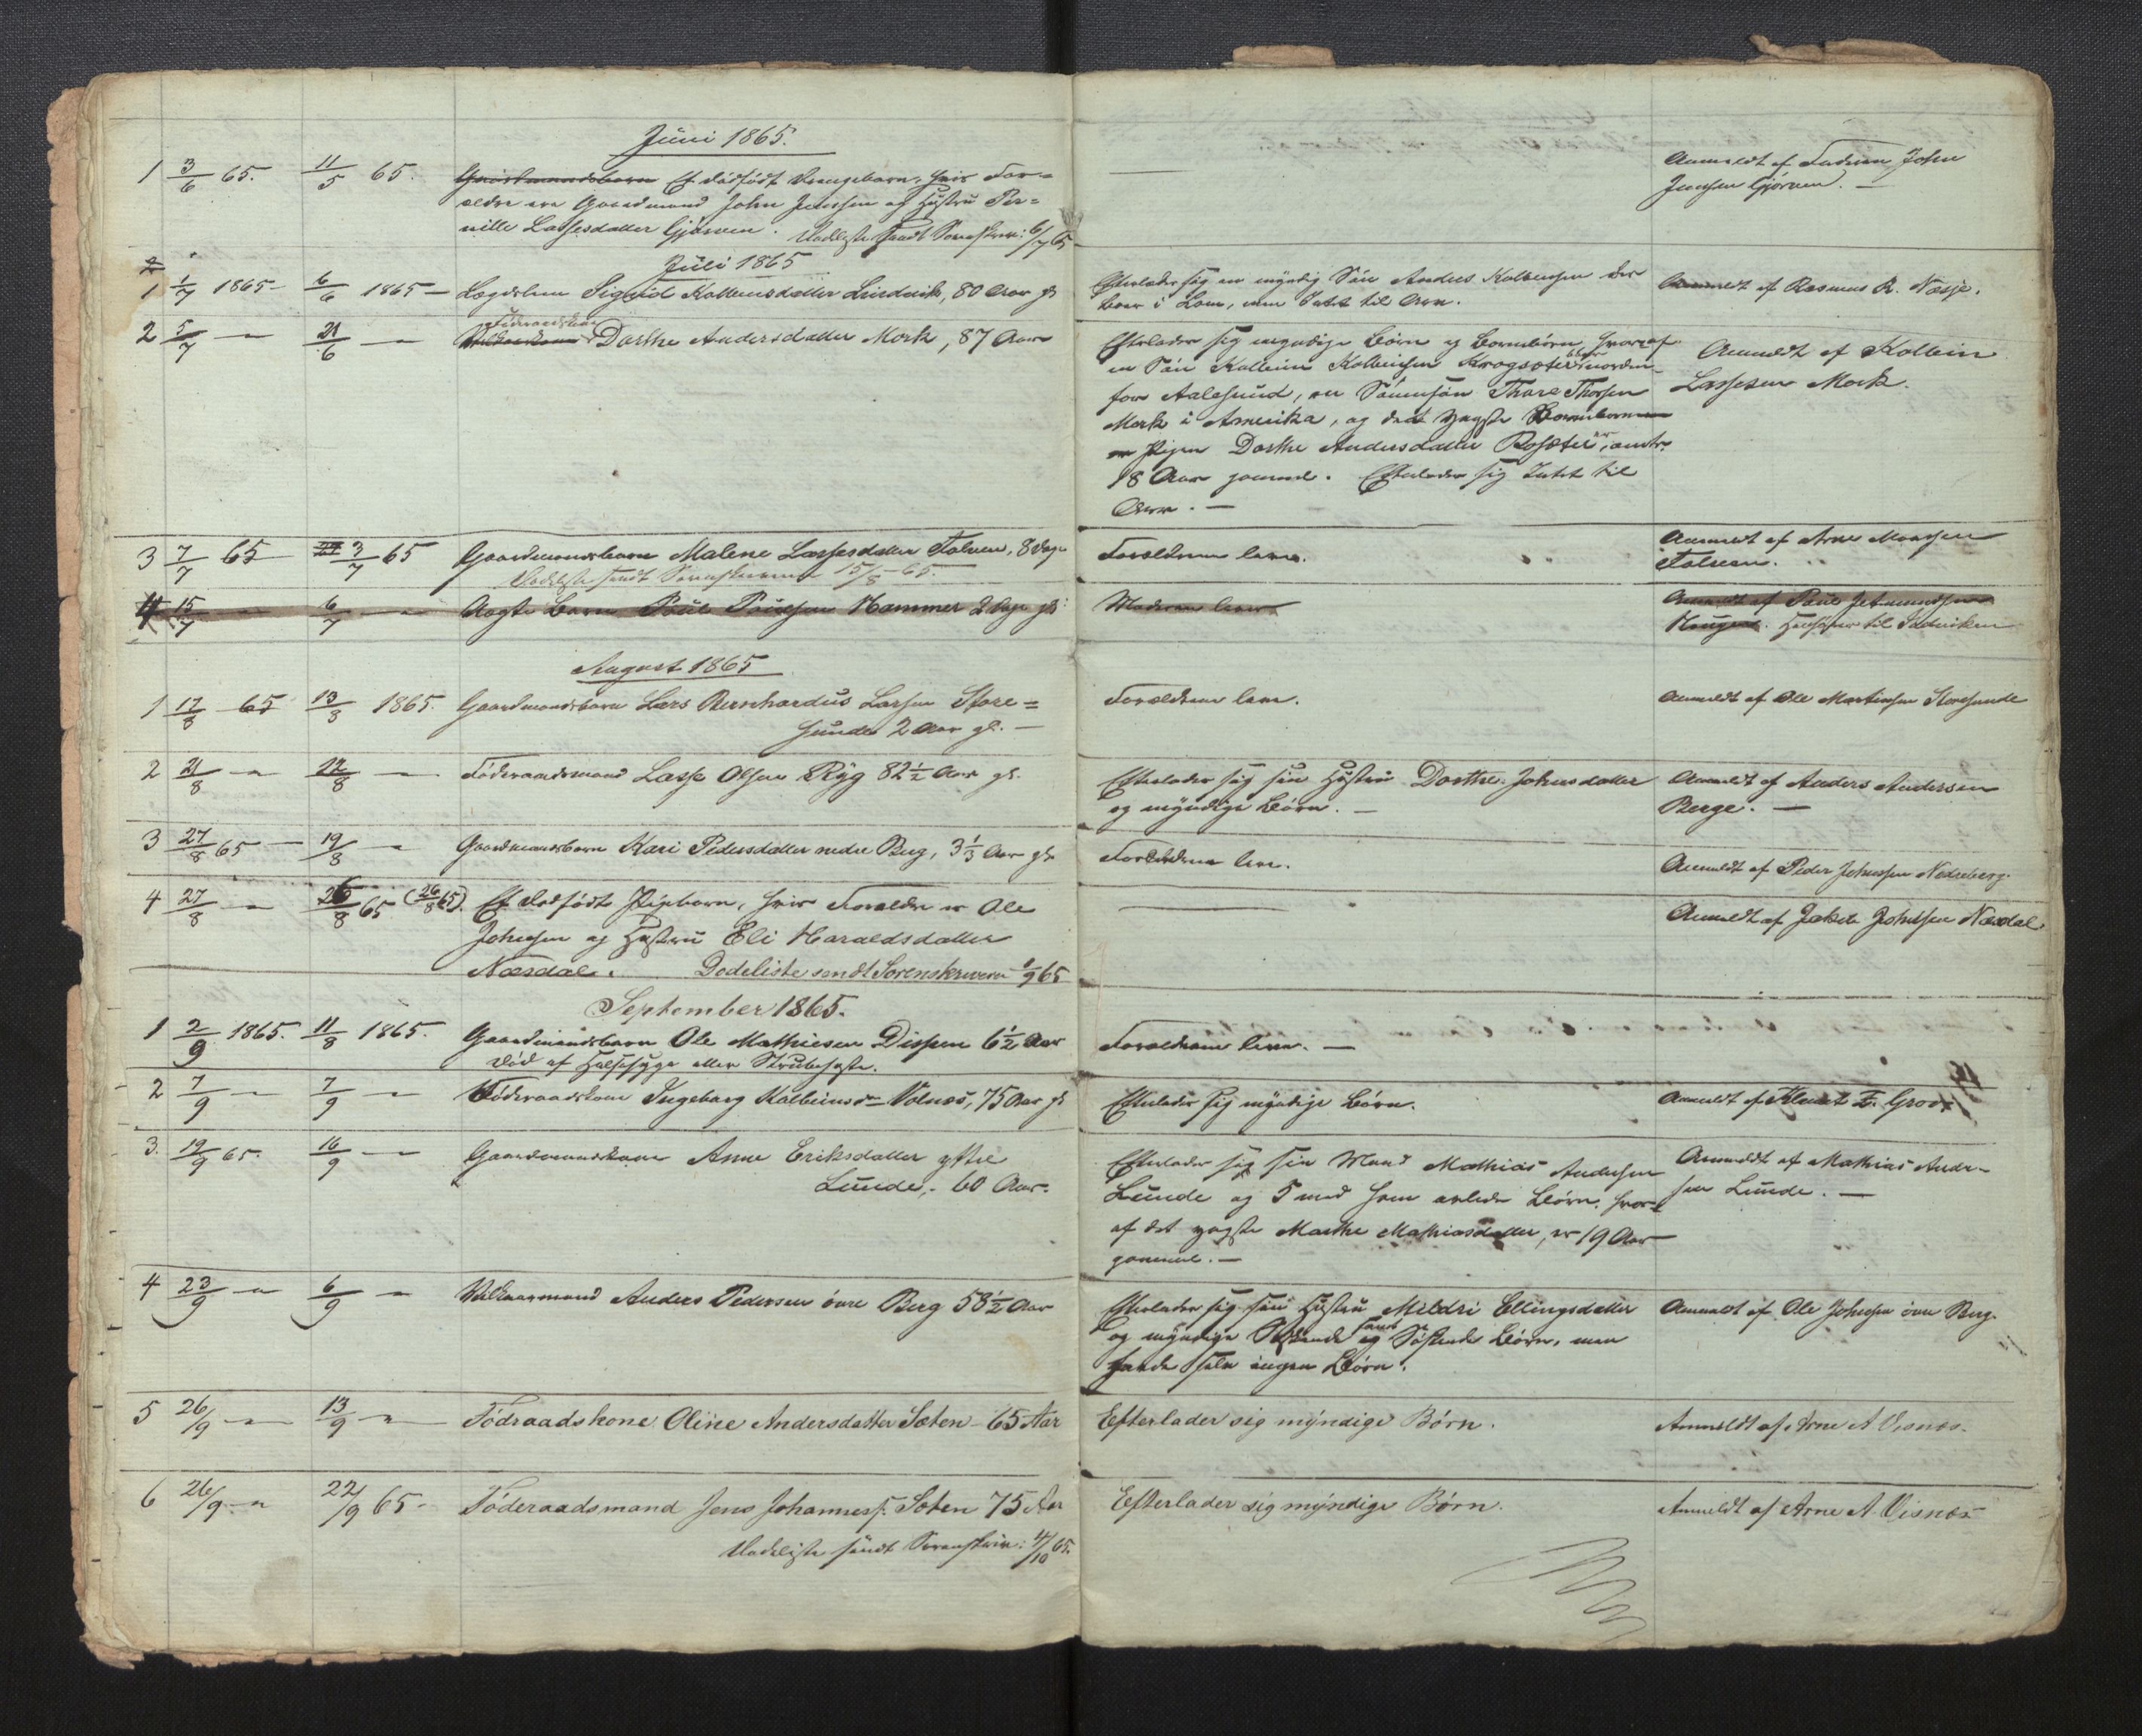 Juni 1865.
1 3/6 65. 11/5 65. Gaardmandsbarn Et dødfødt Drengebarn, hvis For=
ældre ere Gaardmand John Jenssen og Hustru Per=
nille Lassesdatter Gjørven.
Dødsliste sendt Sorenskriv: 6/7 65
—
Anmeldt af Faderen John
Jenssen Gjørven. —
Juli 1865
2
1 1/7 1865 – 6/6 1865 – Lægdslem Sigrid Kolbeinsdatter Lindvik, 80 Aar gl
Efterlader sig en myndig Søn Anders Kolbeinsen der
boer i Lom, men Intet til Arv.
Anmeldt af Rasmus R. Næsje.
2 5/7 — 21/6 — Føderaadskone Dorthe Andersdatter Mork, 87 Aar
Efterlader sig myndige Børn og Børnebørn, hvoraf
en Søn Kolbein Kolbeinsen Krogsæter boer norden-
for Aalesund, en Sønnesøn Thore Thorsen
Mork i Amerika, og det yngste Barnebarn
er Pigen Dorthe Andersdatter Rosæter, er omtr.
18 Aar gammel. Efterlader sig Intet til
Arv. —
Anmeldt af Kolbein
Lassesen Mork.
3 7/7 65 3/7 65 Gaardmandsbarn Malene Lassesdatter Folven, 8 Dage
Dødsliste sendt Sorenskriveren 15/8 65.
Forældrene leve.
Anmeldt af Arne Monssen
Folven.
4 15/7 — 6/7 — Ægte Barn Poul Poulsen Hammer 2 Dage gl:
Moderen lever
Anmeldt af Poul
Haugen. Henføres til Sødviken
August 1865
1 17/8 65 13/8 1865. Gaardmandsbarn Lars Bernhardus Larsen Store=
hunde 2 Aar gl. —
Forældrene leve.
Anmeldt af Ole Martinsen Storehunde
2 21/8 — 12/8 — Føderaadsmand Lasse Olsen Ryg 82 1/2 Aar gl.
Efterlader sig sin Hustru Dorthe Johnsdatter
og myndige Børn. —
Anmeldt af Anders Andersen
Berge. —
3 27/8 65 — 19/8 — Gaardmandsbarn Kari Pedersdatter nedre Berg, 3 1/3 Aar gl.
Forældrene leve.
Anmeldt af Peder Johnssen Nedreberg.
4 27/8 — 26/8 65 (26/8 65). Et dødfødt Pigebarn, hvis Forældre er Ole
Johnsen og Hustru Eli Haraldsdatter
Næsdal. Dødeliste sendt Sorenskriveren 1/9 65
—
Anmeldt af Jakob Johnssen Næsdal.
September 1865.
1 2/9 1865. 11/8 1865. Gaardmandsbarn Ole Mathiesen Dispen 6 1/2 Aar
død af Halssyge eller Strubehoste.
Forældrene leve. —
2 7/9 — 7/9 — Føderaadskone Ingeborg Kolbeinsdr Volnæs, 75 Aar gl
Efterlader sig myndige Børn.
Anmeldt af Klemet E. Grov
3. 19/9 65. 16/9 — Gaardmandskone Anne Eriksdatter yttre
Lunde, - 60 Aar.
Efterlader sig sin Mand Mathias Andersen
Lunde og 5 med ham avlede Børn, hvor-
af det yngste Marthe Mathiasdatter, er 19 Aar
gammel. —
Anmeldt af Mathias Ander-
sen Lunde. —
4 23/9 — 6/9 — Vilkaarmand Anders Pedersen øvre Berg 58 1/2 Aar
Efterlader sig sin Hustru Mildri Ellingsdatter
og myndige Søskende samt Søskende Børn, men
havde selv ingen Børn.
Anmeldt af Ole Johnsen øvre Berg.
5 26/9 — 13/9 — Fødraadskone Oline Andersdatter Sæten - 65 Aar
Efterlader sig myndige Børn.
Anmeldt af Arne A Visnæs.
6 26/9 — 22/9 65 – Føderaadsmand Jens Johanness. Sæten 75 Aar
Dødsliste sendt Sorenskriv: 4/10 65.
Efterlader sig myndige Børn.
Anmeldt af Arne A. Visnæs